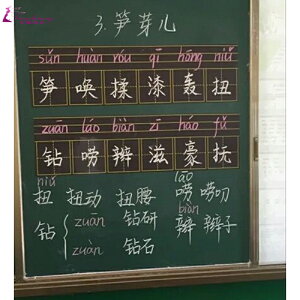 3.笋芽儿
sǔn huàn róu qī hōng niǔ
笋 唤 揉 漆 轰 扭
zuān láo biàn zī háo fǔ
钻 唠 辫 滋 豪 抚
niǔ láo
扭 扭动 扭腰 唠 唠叨
biàn
钻 { zuān 钻研 辫 辫子
zuàn 钻石